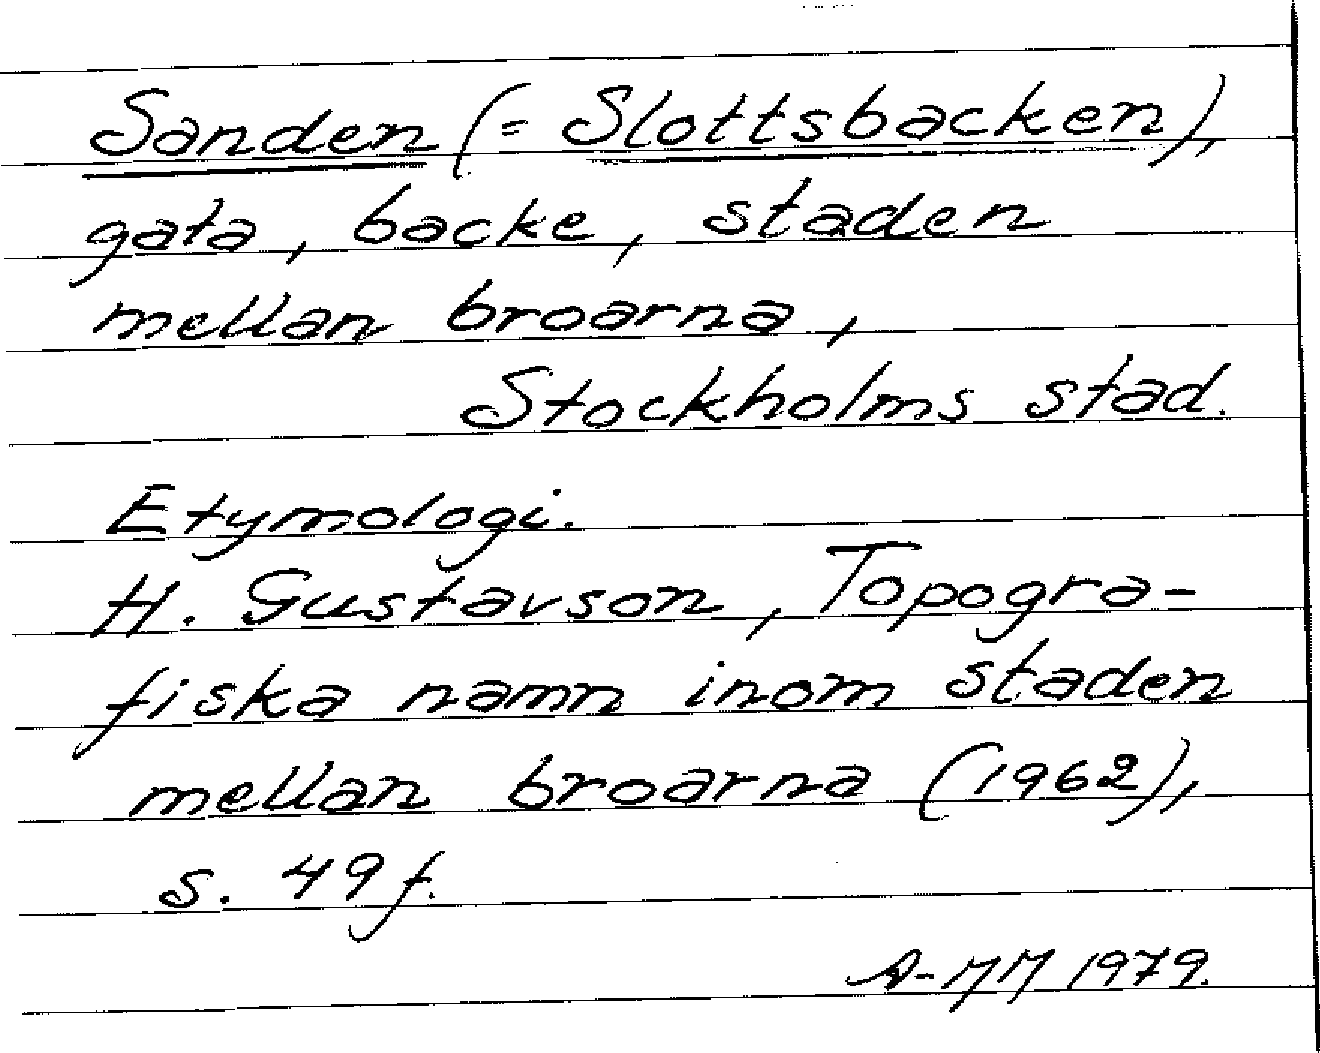 Sanden (= Slottsbacken),
gata, backe, staden
mellan broarna,
Stockholms stad.
Etymologi.
H. Gustavson, Topogra-
fiska namn inom staden
mellan broarna (1962),
s. 49 f.
A-MM 1979.